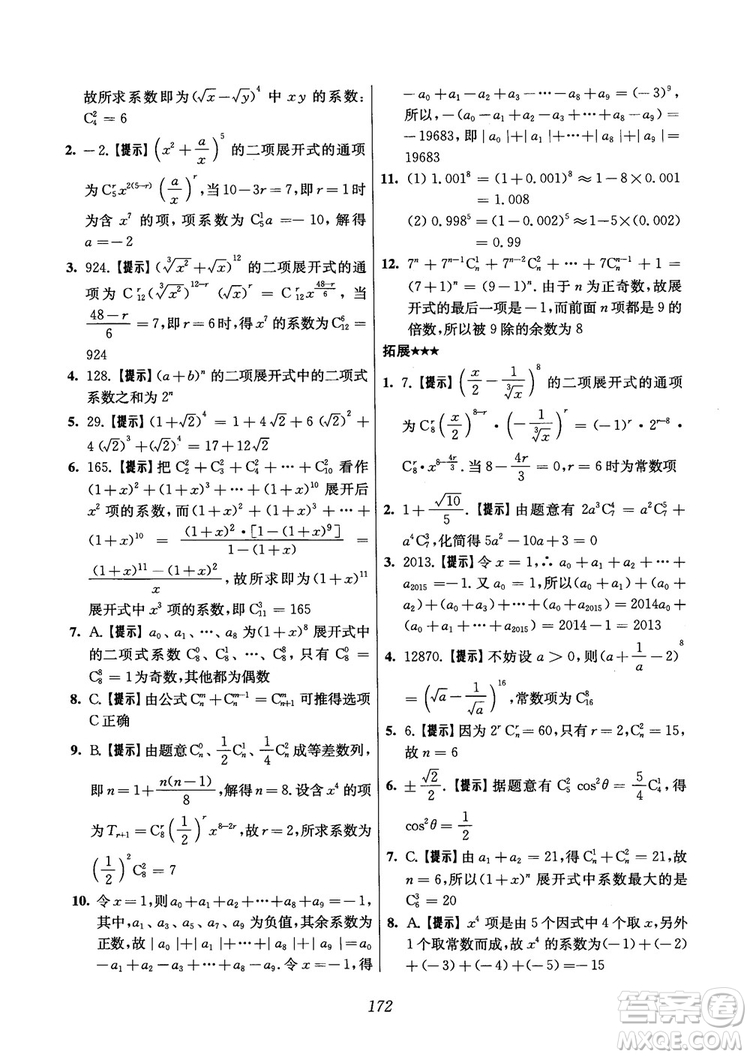 故所求系数即为(√x−√y)⁴ 中 xy 的系数:
C₄² = 6
2. −2.【提示】(x² + a/x)⁵ 的二项展开式的通项
为 C₅ʳx²⁽⁵⁻ʳ⁾(a/x)ʳ,当 10−3r=7,即 r=1 时
为含 x⁷ 的项,项系数为 C₅¹a=−10,解得
a=−2
3. 924.【提示】(∛x² + √x)¹² 的二项展开式的通
项为 C₁₂ʳ(∛x²)¹²⁻ʳ (√x)ʳ = C₁₂ʳx^((48−r)/6),当
(48−r)/6 = 7,即 r=6 时,得 x⁷ 的系数 C₁₂⁶=
924
4. 128.【提示】(a+b)ⁿ 的二项展开式中的二项式
系数之和为 2ⁿ
5. 29.【提示】(1+√2)⁴ = 1+4√2+6(√2)²+
4(√2)³+(√2)⁴=17+12√2
6. 165.【提示】把 C₂²+C₃²+C₄²+⋯+C₁₀² 看作
(1+x)²+(1+x)³+⋯+(1+x)¹⁰ 展开后
x² 项的系数,而(1+x)²+(1+x)³+⋯+
(1+x)¹⁰ = (1+x)²·[1−(1+x)⁹]/(1−(1+x)) =
((1+x)¹¹−(1+x)²)/x,故所求系数即为(1+x)¹¹
展开式中 x³ 项的系数,即 C₁₁³=165
7. A.【提示】a₀、a₁、⋯、a₈ 为(1+x)⁸ 展开式中
的二项式系数 C₈⁰、C₈¹、⋯、C₈⁸,其中 C₈⁰=
C₈⁸=1为奇数,其他都为偶数
8. C.【提示】由公式 Cₙᵐ+Cₙᵐ⁻¹=Cₙ₊₁ᵐ 可推得选项
C 正确
9. B.【提示】由题意 Cₙ⁰、1/2 Cₙ¹、1/4 Cₙ² 成等差数列,
即 n=1+n(n−1)/8,解得 n=8. 设含 x⁴ 的项
为 Tᵣ₊₁=C₈ʳ(1/2)ʳx⁸⁻²ʳ,故 r=2,所求系数为
(1/2)²C₈²=7
10. 令 x=1,则 a₀+a₁+⋯+a₈+a₉=−1,
其中,a₁、a₃、a₅、a₇、a₉ 为负值,其余系数为
正数,故|a₀|+|a₁|+⋯+|a₈|+|a₉|=a₀
−a₁+a₂−a₃+⋯+a₈−a₉. 令 x=−1,得
−a₀+a₁−a₂+a₃−⋯−a₈+a₉=(−3)⁹,
所以,−(a₀−a₁+a₂−a₃+⋯+a₈−a₉)=
−19683,即|a₀|+|a₁|+⋯+|a₈|+|a₉|=
19683
11. (1) 1.001⁸ = (1+0.001)⁸ ≈1+8×0.001
= 1.008
(2) 0.998⁵ = (1−0.002)⁵ ≈1−5×(0.002)
= 0.99
12. 7ⁿ + 7ⁿ⁻¹Cₙ¹ + 7ⁿ⁻²Cₙ² + ⋯ + 7Cₙⁿ⁻¹ =
(7+1)ⁿ−1=(9−1)ⁿ. 由于 n 为正奇数,故展
开式的最后一项是−1,而前面 n 项都是 9 的
倍数,所以被 9 除的余数为 8
拓展★★★
1. 7.【提示】(x/2 − 1/∛x)⁸ 的二项展开式的通项
为 C₈ʳ(x/2)⁸⁻ʳ·(−1/∛x)ʳ=(−1)ʳ·2ʳ⁻⁸·
C₈ʳ·x^(8−4r/3). 当 8−4r/3=0,即 r=6 时为常数项
2. 1+√10/5.【提示】由题意有 2a³C₇⁴=a²C₇⁵+
a⁴C₇³,化简得 5a²−10a+3=0
3. 2013.【提示】令 x=1,∴ a₀+a₁+a₂+⋯+
a₂₀₁₅=−1. 又 a₀=1,所以(a₀+a₁)+(a₀+
a₂)+(a₀+a₃)+⋯+(a₀+a₂₀₁₅)=2014a₀+
(a₀+a₁+⋯+a₂₀₁₅)=2014−1=2013
4. 12870.【提示】不妨设 a>0,则(a+1/a−2)⁸
=(√a−1/√a)¹⁶,常数项为 C₁₆⁸
5. 6.【提示】因为 2ʳCₙʳ=60,只有 r=2 时成立,
故 n=6
6. ±√2/2.【提示】据题意有 C₅² cos²θ=5/4 C₄¹,得
cos²θ=1/2
7. C.【提示】由 a₁+a₂=21,得 Cₙ¹+Cₙ²=21,故
n=6,所以(1+x)ⁿ 展开式中系数最大的为
C₆³=20
8. A.【提示】x⁴ 项是由 5 个因式中 4 个取 x,另外
1 个取常数而成,故 x⁴ 的系数为(−1)+(−2)
+(−3)+(−4)+(−5)=−15
172
答案圈
MXQE.COM